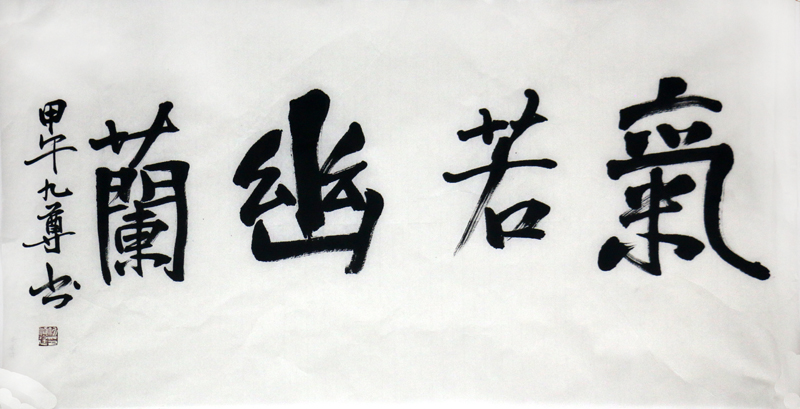 氣若幽蘭
甲午九尊书